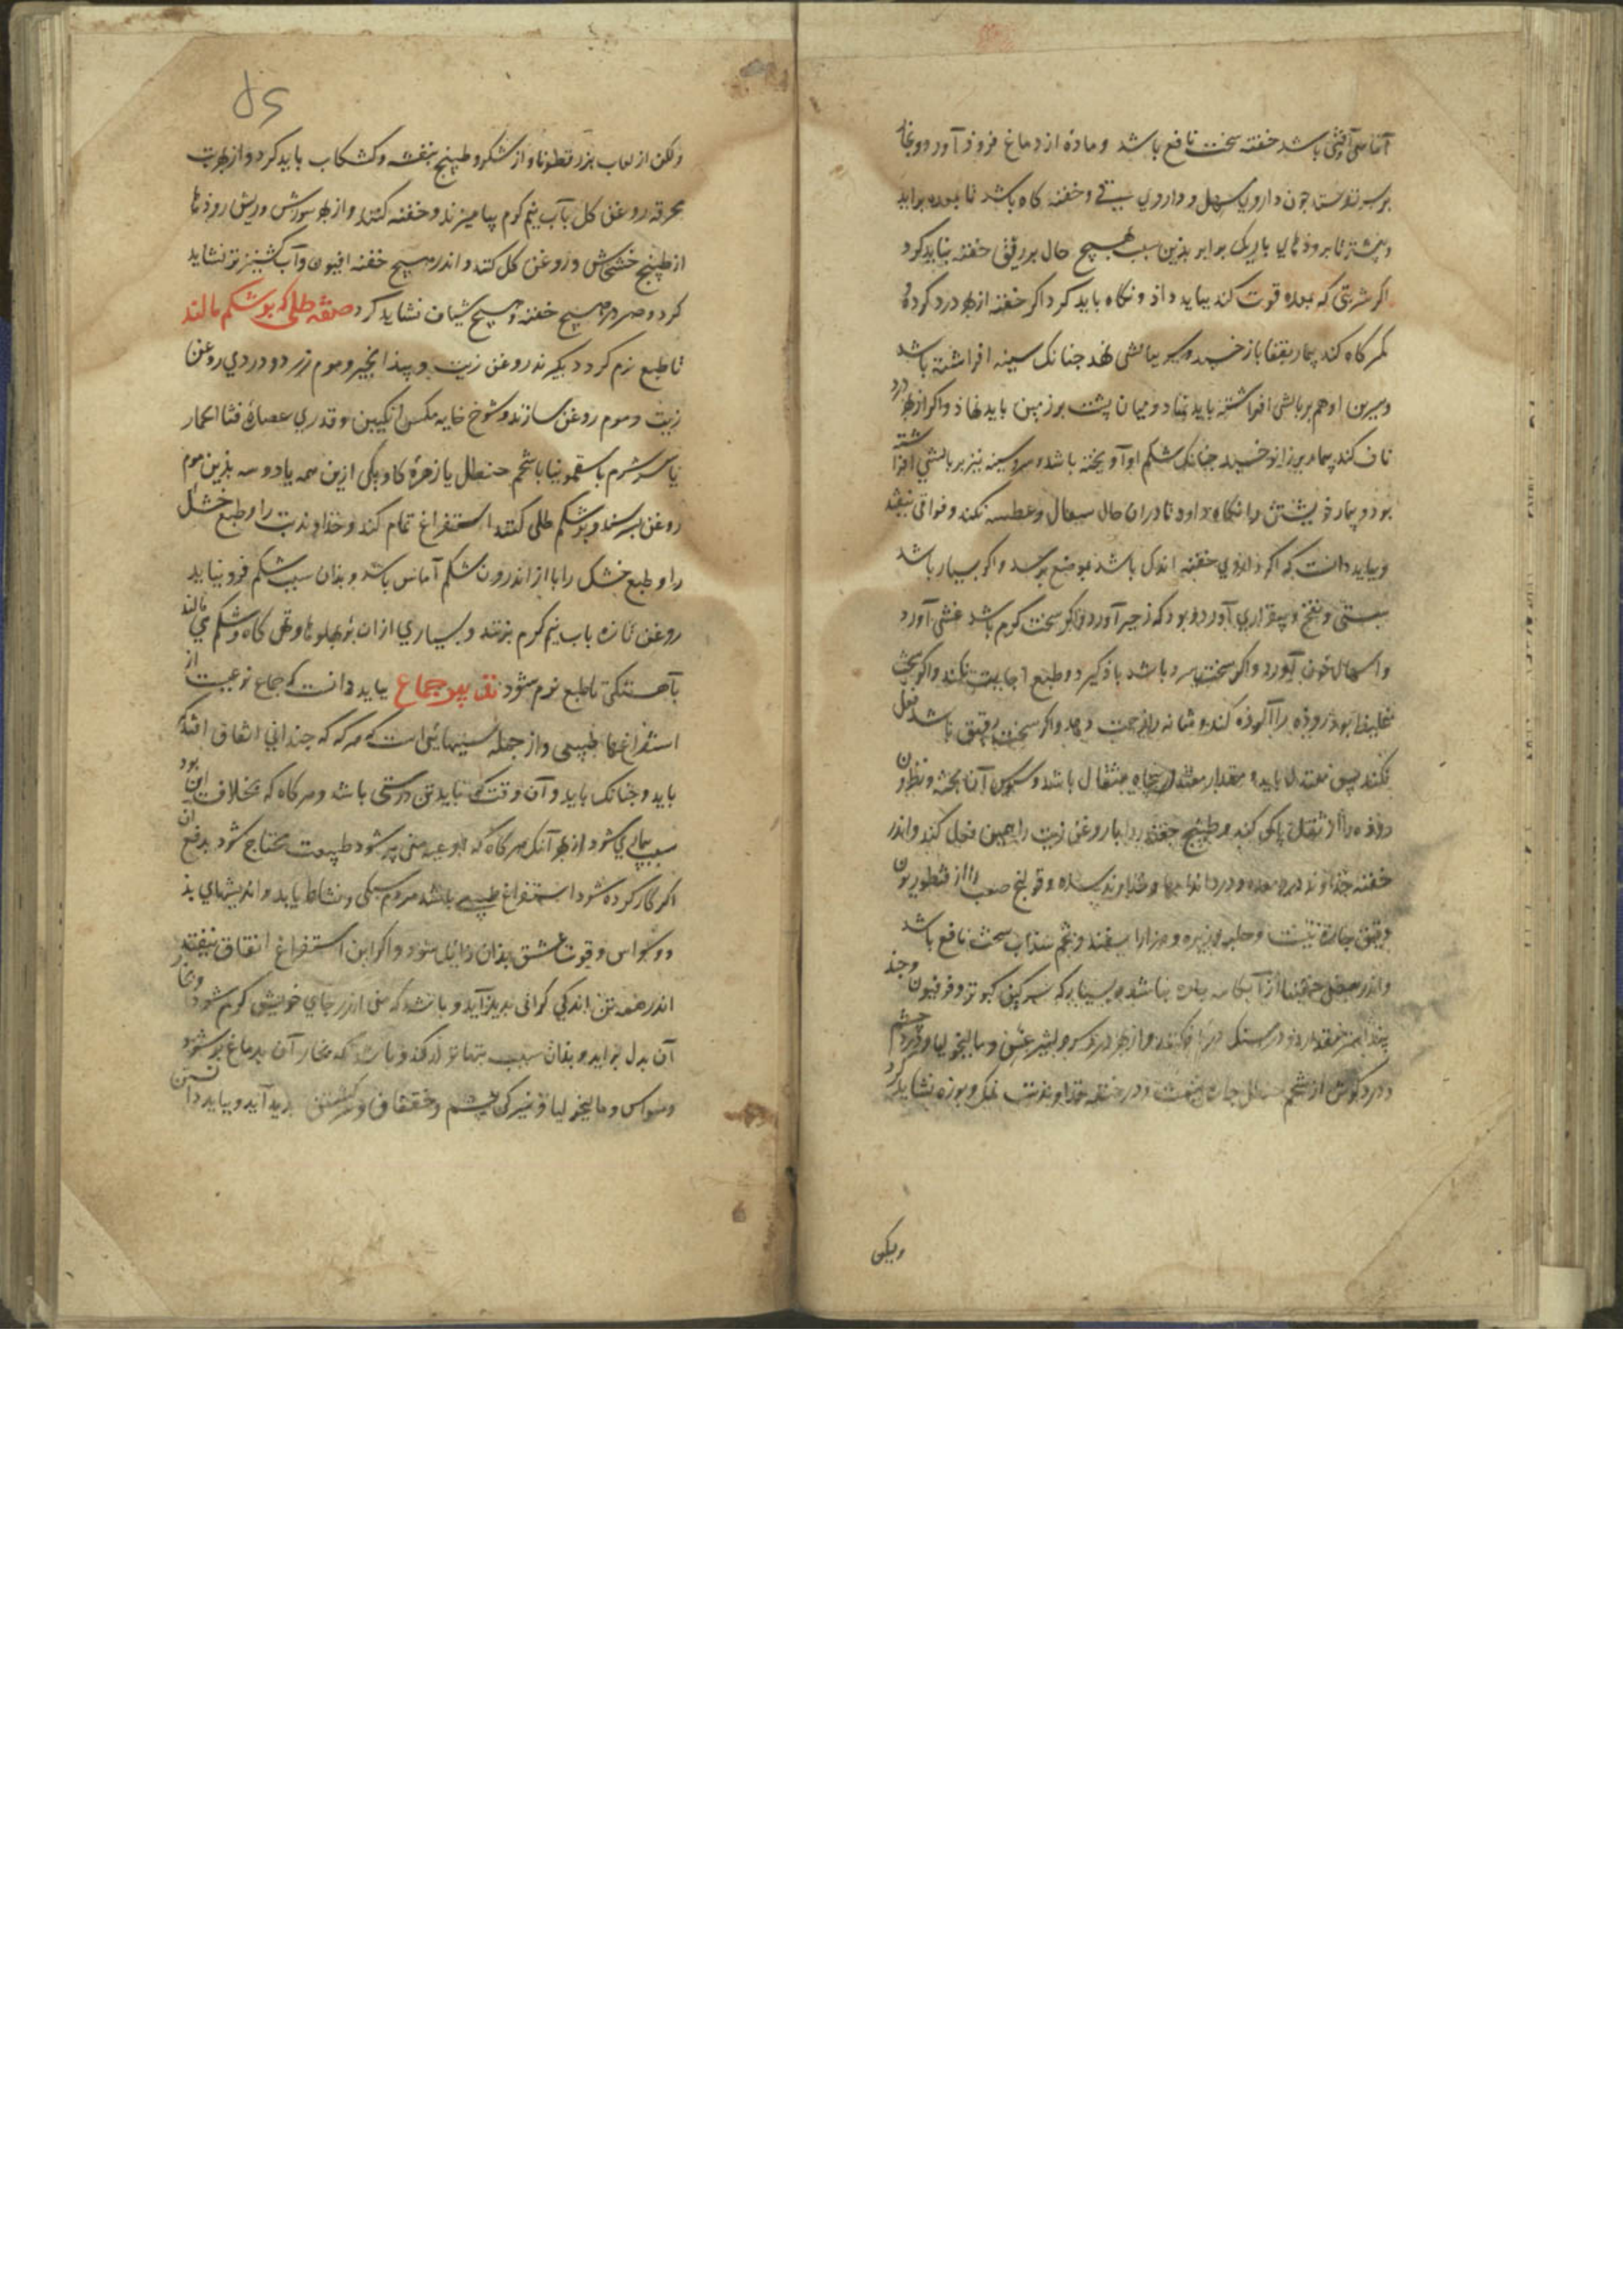 آفتی باشد حقنه سخت نافع باشد و ماده از دماغ فروذ آورد و بخار
برسر نتوان جون داروی مسهل و داروی قی و حقنه کاه باشد تا بمعده براید
و بیشتر تا بروذهای باریک برابر بذین سبب هیچ حال بر ریق حقنه نباید کرد
اکر شربتی که معده قوت کند بباید داذ و نکاه باید کرد اکر حقنه از بهر درد کرده و
کمرکاه کند بیمار بقفا باز خسبد و سر ببالشی نهد جنانک سینه افراشته باشد
و سرین او هم بر بالشی افراشته باید نهاد و میان پشت بر زمین باید نهاذ و اکر از بهر درد
ناف کند بیمار بر زانو خسبد جنانک شکم او آویخته باشد و سر و سینه نیز بر بالشی افراشته
بود و بیمار خویشتن را نکاه دارد تا دران حال سعال و عطسه نکند و فواق نیفتد
و بباید دانست که اکر داروی حقنه اندک باشد بموضع نرسد و اکر بسیار باشد
سستی و نفخ و بیقراری آورد و بود که زحیر آورد و اکر سخت کرم باشد غشی آورد
و اسهال خون آورد و اکر سخت سرد باشد باذ کیرد و طبع اجابت نکند و اکر سخت
غلیظ بود روذه را آلوذه کند و مثانه را زحمت دهد و اکر سخت رقیق باشد فعل
نکند پس معتدل باید و مقدار معتدل پنجاه مثقال باشد و سبوس آنا پخته و نطرون
روذه را از ثقل پاک کند و طبیخ جغندر با روغن زیت را همین فعل کند و اندر
حقنه خداوند درد معده و درد اندامها و خداوند سده و قولنج صعب را از قنطوریون
دقیق جاره نیست و حلبه و زیره و هزار اسفند و تخم سذاب سخت نافع باشد
و اندر بعضی حقنها از آبکامه جاره نباشد و بسیار که سرکین کبوتر و فرفیون و جند
بیدستر مقدار دو درمسنک در افکنند و از بهر درد سر و لیثرغس و مالیخولیا و درد چشم
و درد کوش از شحم حنظل جاره نیست و در حقنه خداوند تب نمک و بوره نشاید کرد
ولکن
ولکن از لعاب بزرقطونا و از شکر و طبیخ بنفشه و کشکاب باید کرد و از بهر تب
محرقه روغن کل بآب نیم کرم بیامیزند و حقنه کنند و از بهر سوزش و ریش روذها
از طبیخ خشخاش و روغن کل کنند و اندر هیچ حقنه افیون و آب کشنیز تر نشاید
کرد و صبر در هیچ حقنه و هیچ شیاف نشاید کرد صفه طلی که بر شکم مالند
تا طبع نرم کردد بکیرند روغن زیت و بیذانجیر و موم زرد و دردی روغن
زیت و موم روغن سازند و شوخ خایه مکس انکبین و قدری عصارهٔ قثا الحمار
یا شبرم یا سقمونیا یا شحم حنظل یا زهرهٔ کاو یکی ازین همه یا دو سه بذین موم
روغن بسرشند و بر شکم طلی کنند استفراغ تمام کند و خذاوند تب را و طبع خشک
را و طبع خشک را یا از اندرون شکم آماس باشد و بذان سبب شکم فرو نیاید
روغن تازه باب نیم کرم بزنند و بسیاری ازان بر پهلوها و تهی کاه و شکم می مالند
بآهستکی تا طبع نرم شود تدبیر جماع بباید دانست که جماع نوعیست از
استفراغها طبیعی و از جمله سببهائی است که هرکه که جندانی اتفاق افتد که
باید و جنانک باید و آن وقت که باید تن درستی باشد و هرکاه که بخلاف این بود
سبب بیماری شود از بهر آنک هرکاه که اوعیه منی پر شود طبیعت محتاج شود بدفع آن
اکر کار کرده شود استفراغ طبیعی باشد مردم سبکی و نشاط یابد و اندیشهای بد
و وسواس و قوت عشق بذان زایل شود و اکر این استفراغ اتفاق نیفتد
اندر همه تن اندکی کرانی بدید آید و باشد که منی اندر جای خویش کرم شود و بخار
آن بدل براید و بذان سبب تبها تولد کند و باشد که بخار آن بدماغ بر شود و
وسواس و مالیخولیا و تیرکی چشم و خفقان و سرکشتن بدید آید و بباید دانستن